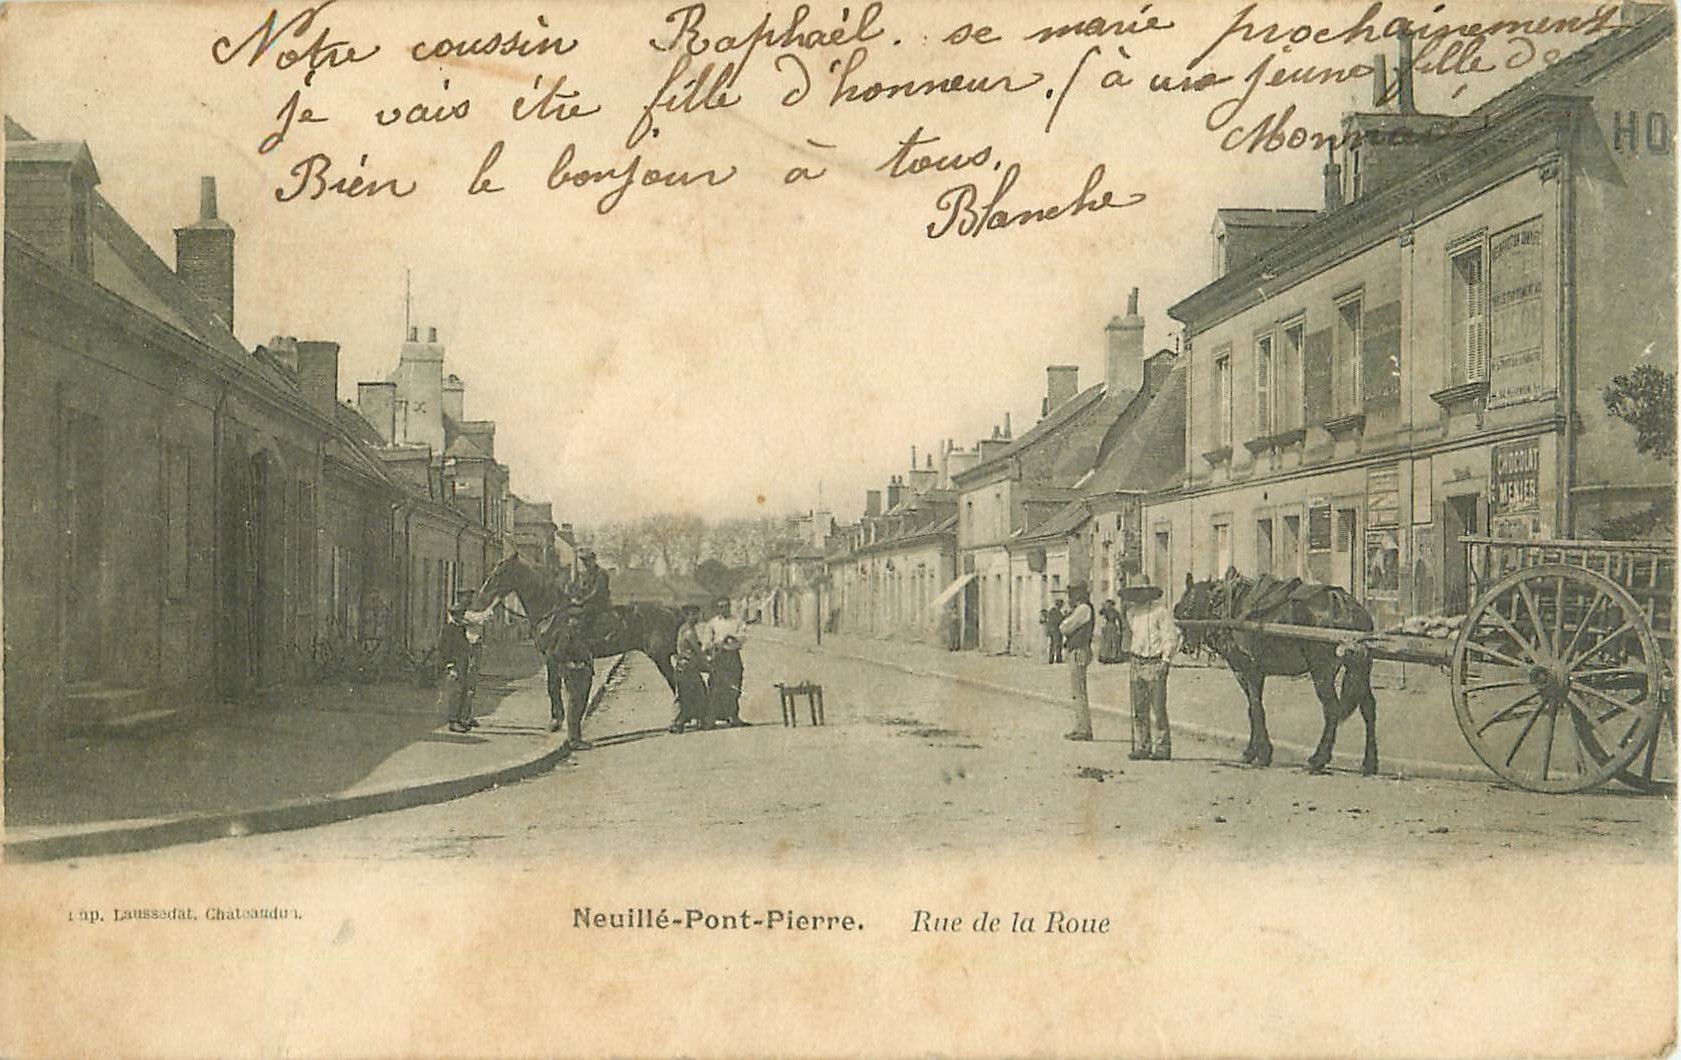 Notre coussin Raphaël. se marie prochainement
je vais être fille d'honneur. (à une jeune fille de
Bien le bonjour à tous. Monnaie)
Blanche
HO
CHOCOLAT
MENIER
Imp. Laussedat, Châteaudun.
Neuillé-Pont-Pierre. Rue de la Roue